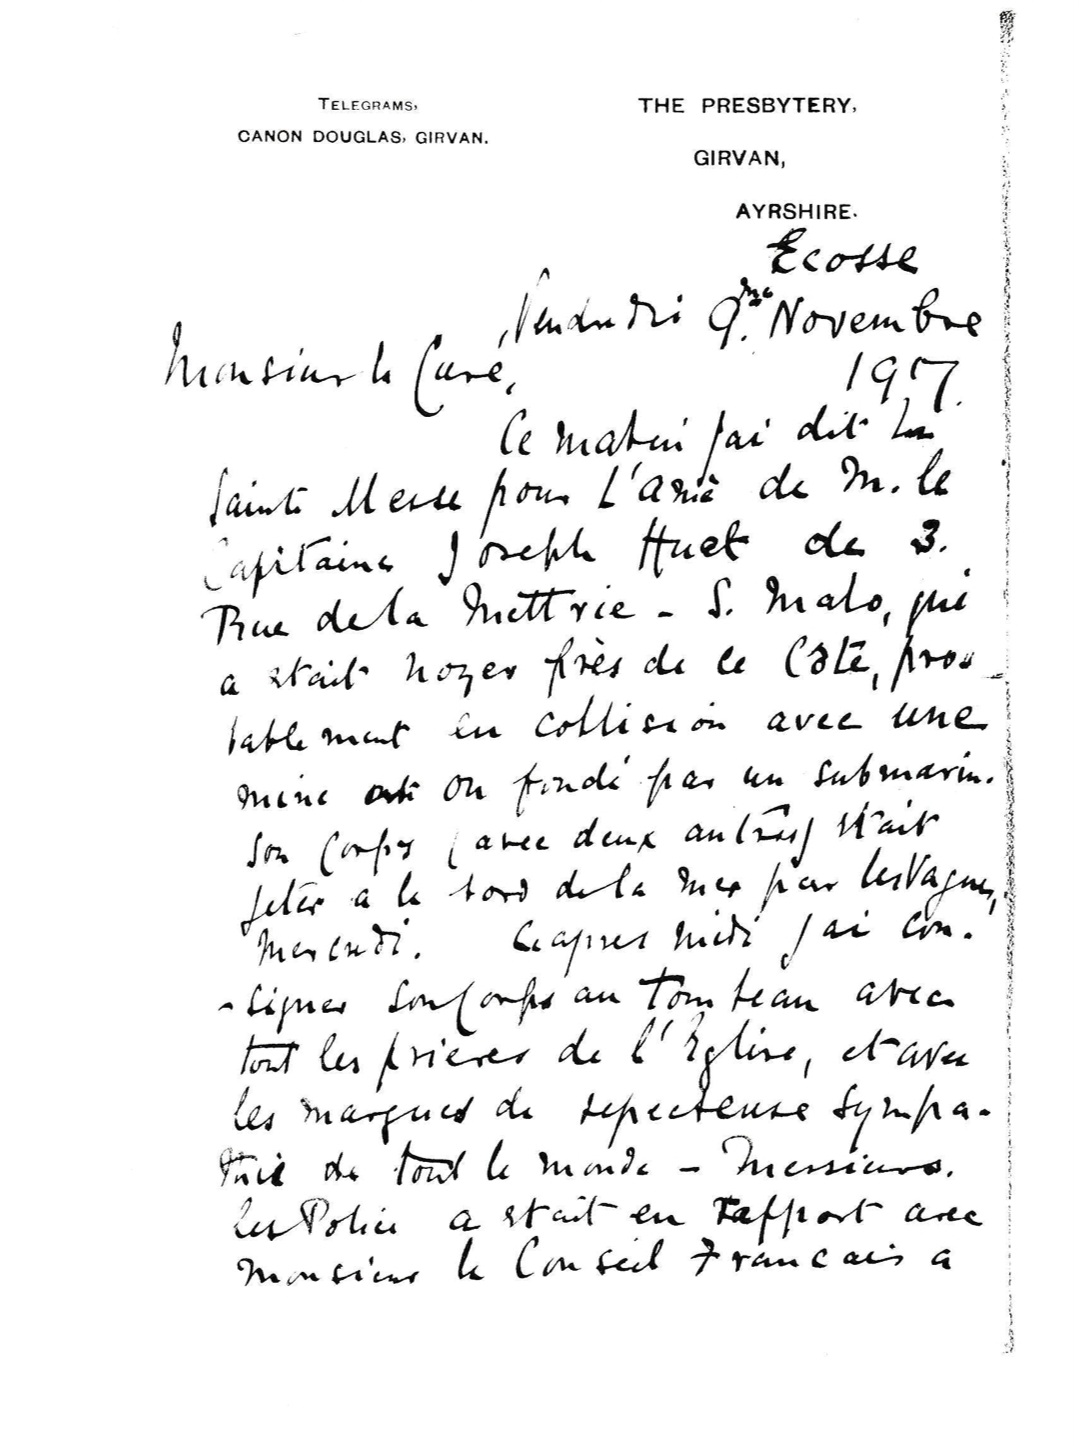 TELEGRAMS,
CANON DOUGLAS, GIRVAN.
THE PRESBYTERY,
GIRVAN,
AYRSHIRE.
Ecosse
Vendredi 9me Novembre
1917.
Monsieur le Curé,
Ce matin j'ai dit la
Sainte Messe pour l'âme de M. le
Capitaine Joseph Huet de 3.
Rue de la Mettrie - S. Malo, qui
a etait noyer près de ce Côte, pro-
bablement en collision avec une
mine ou fondé par un submarin.
Son Corps (avec deux autres) etait
jeter a le bord de la mer par les Vagues,
Mercredi. Ce apres midi j'ai con-
-signer son Corps au Tombeau avec
tout les prieres de l'Eglise, et avec
les marques de repecteuse Sympa-
thie de tout le monde - Messieurs.
les Police a etait en rapport avec
Monsieur le Conseil Francais a